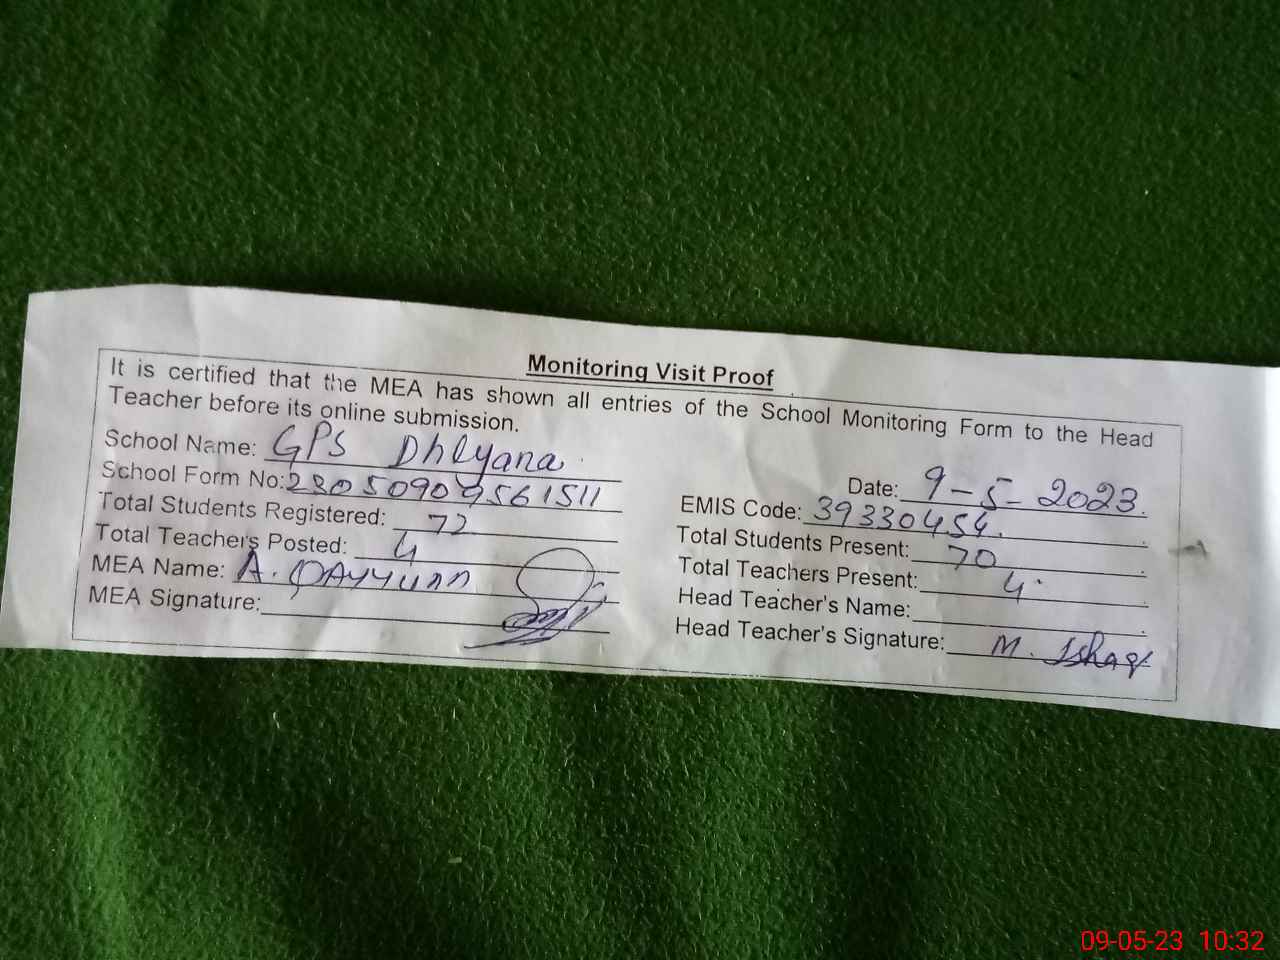 Monitoring Visit Proof
It is certified that the MEA has shown all entries of the School Monitoring Form to the Head
Teacher before its online submission.
School Name: GPS Dhlyana
Date: 9-5-2023.
School Form No: 23050909561511
EMIS Code: 39330454.
Total Students Registered: 72
Total Students Present: 70
Total Teachers Posted: 4
Total Teachers Present: 4
MEA Name: A. QAYYUM
Head Teacher's Name:
MEA Signature:
Head Teacher's Signature: M. Ishaq
09-05-23 10:32